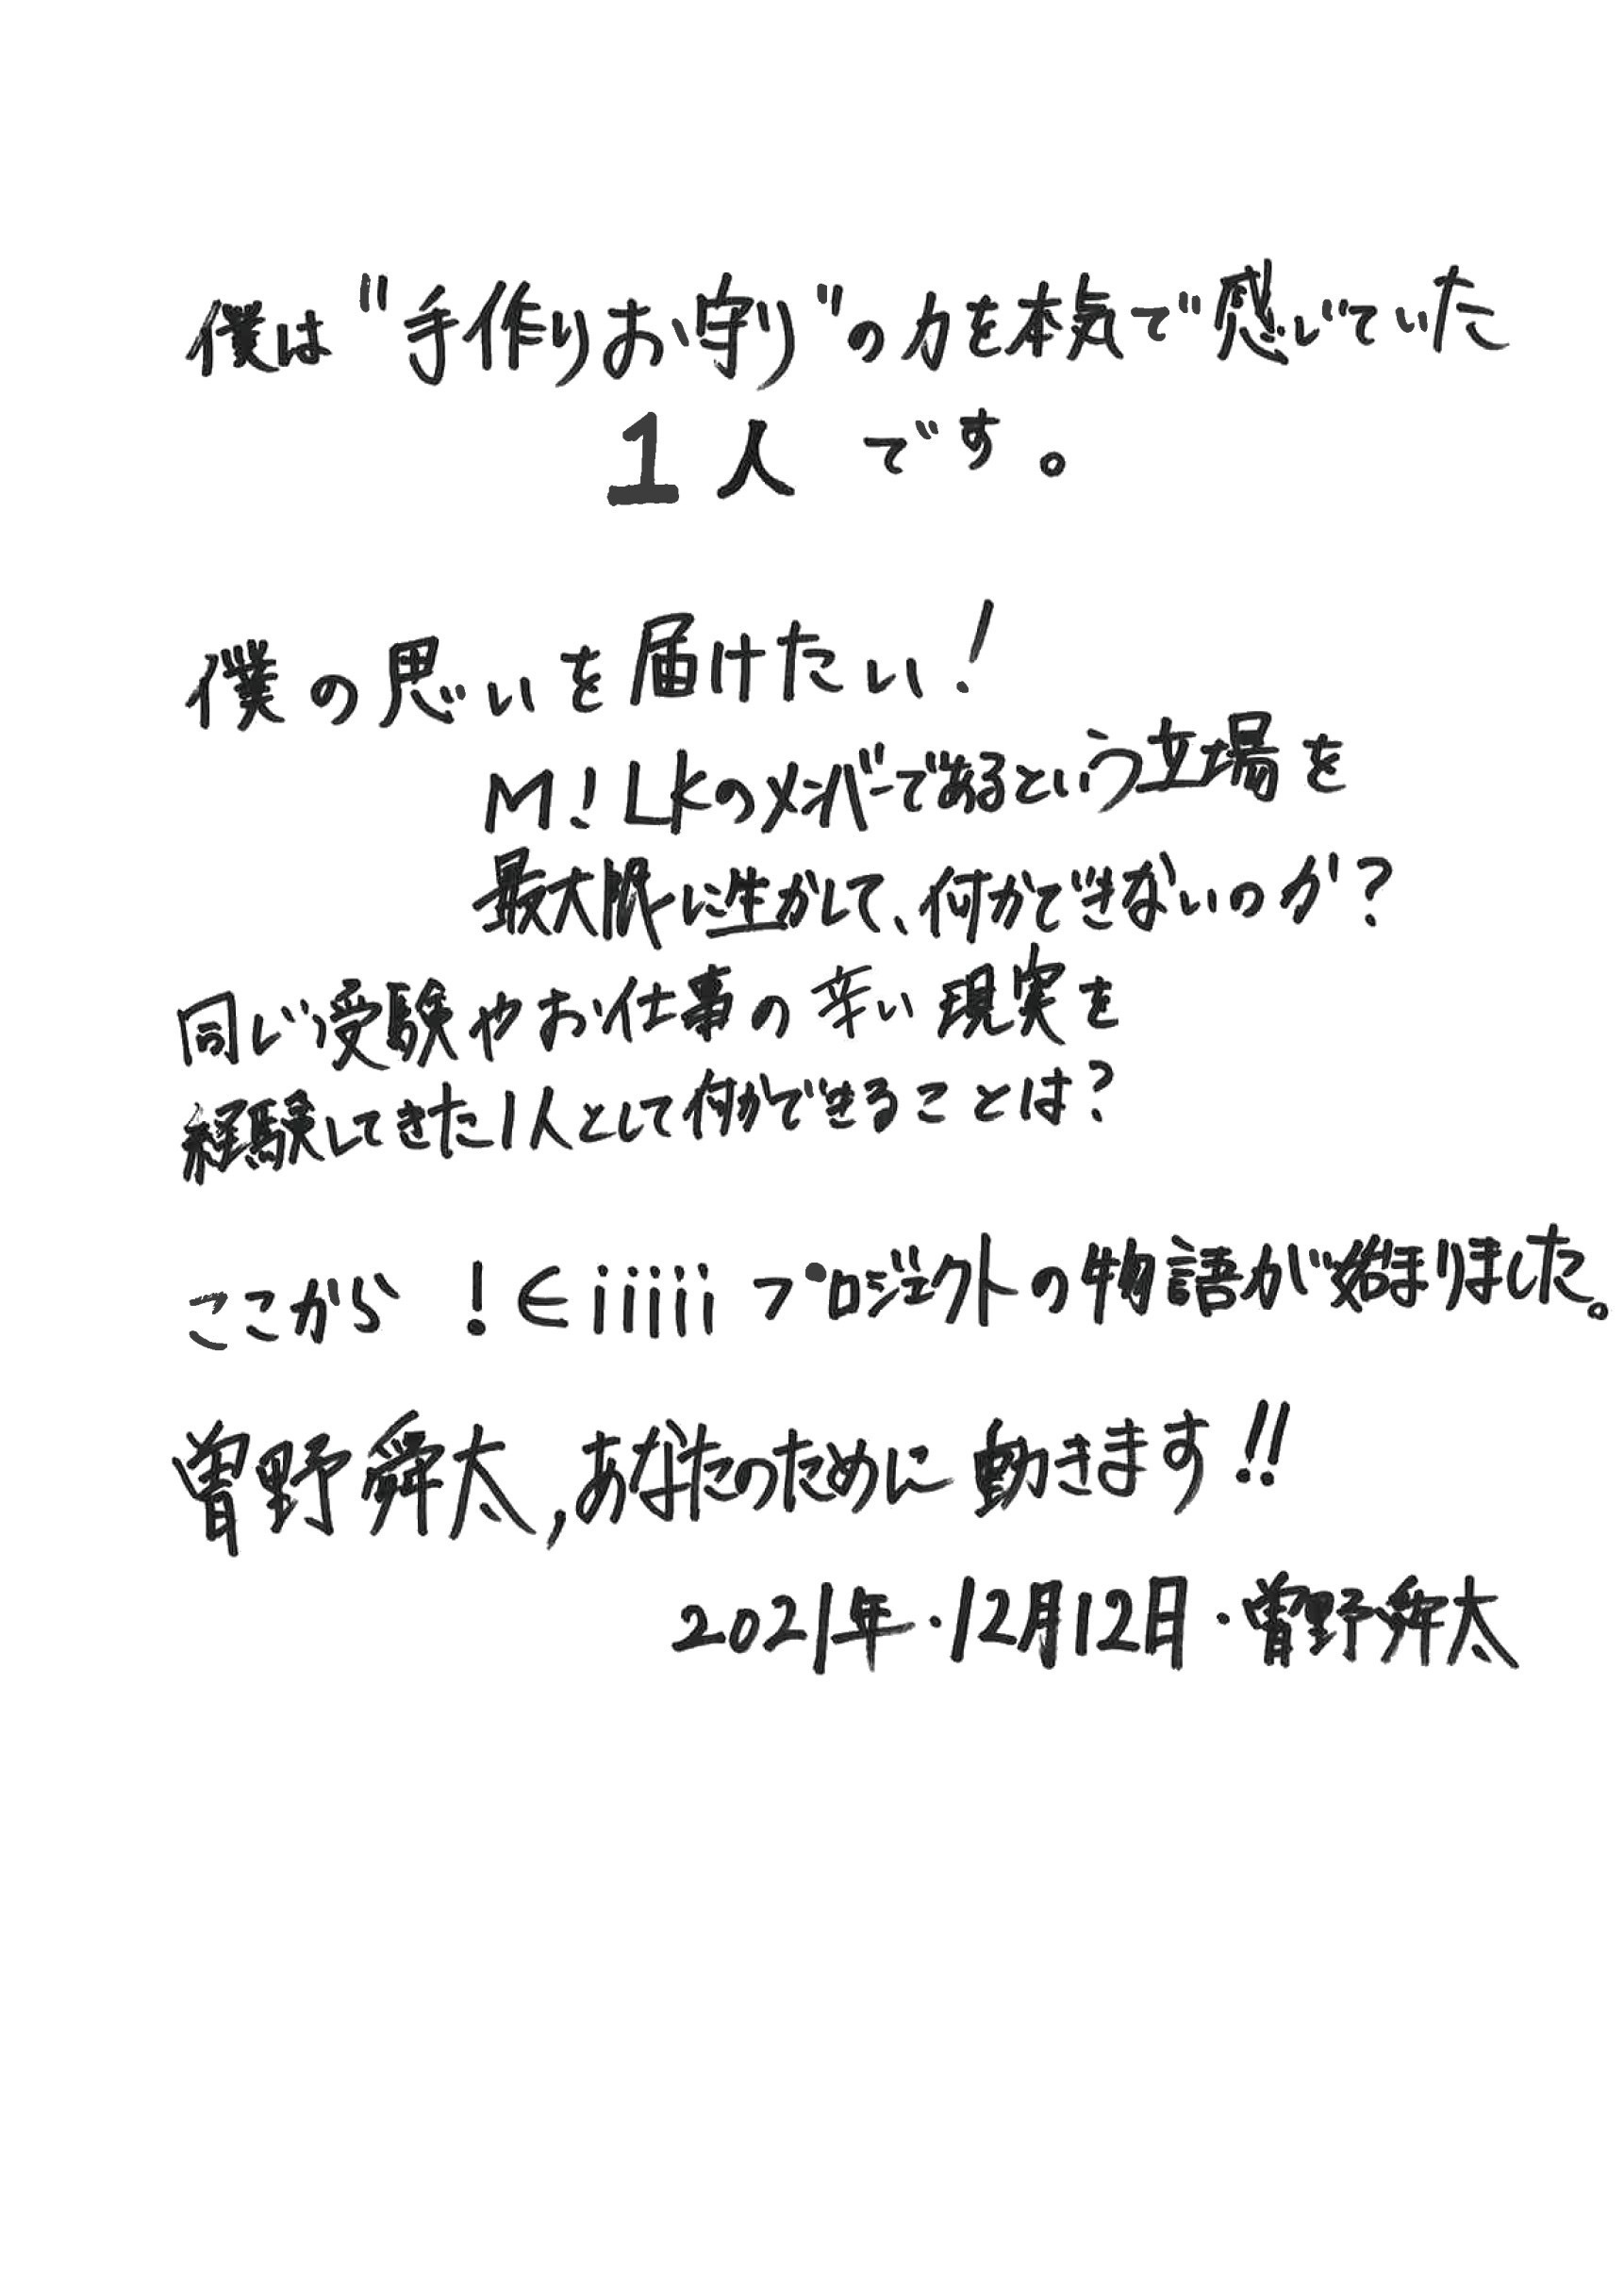 僕は"手作りお守り"の力を本気で感じていた
1人です。
僕の思いを届けたい!
M!LKのメンバーであるという立場を
最大限に生かして、何かできないのか?
同じ受験やお仕事の辛い現実を
経験してきた1人として何かできることは?
ここから !∈iiiii プロジェクトの物語が始まりました。
曽野舜太,あなたのために動きます!!
2021年・12月12日・曽野舜太